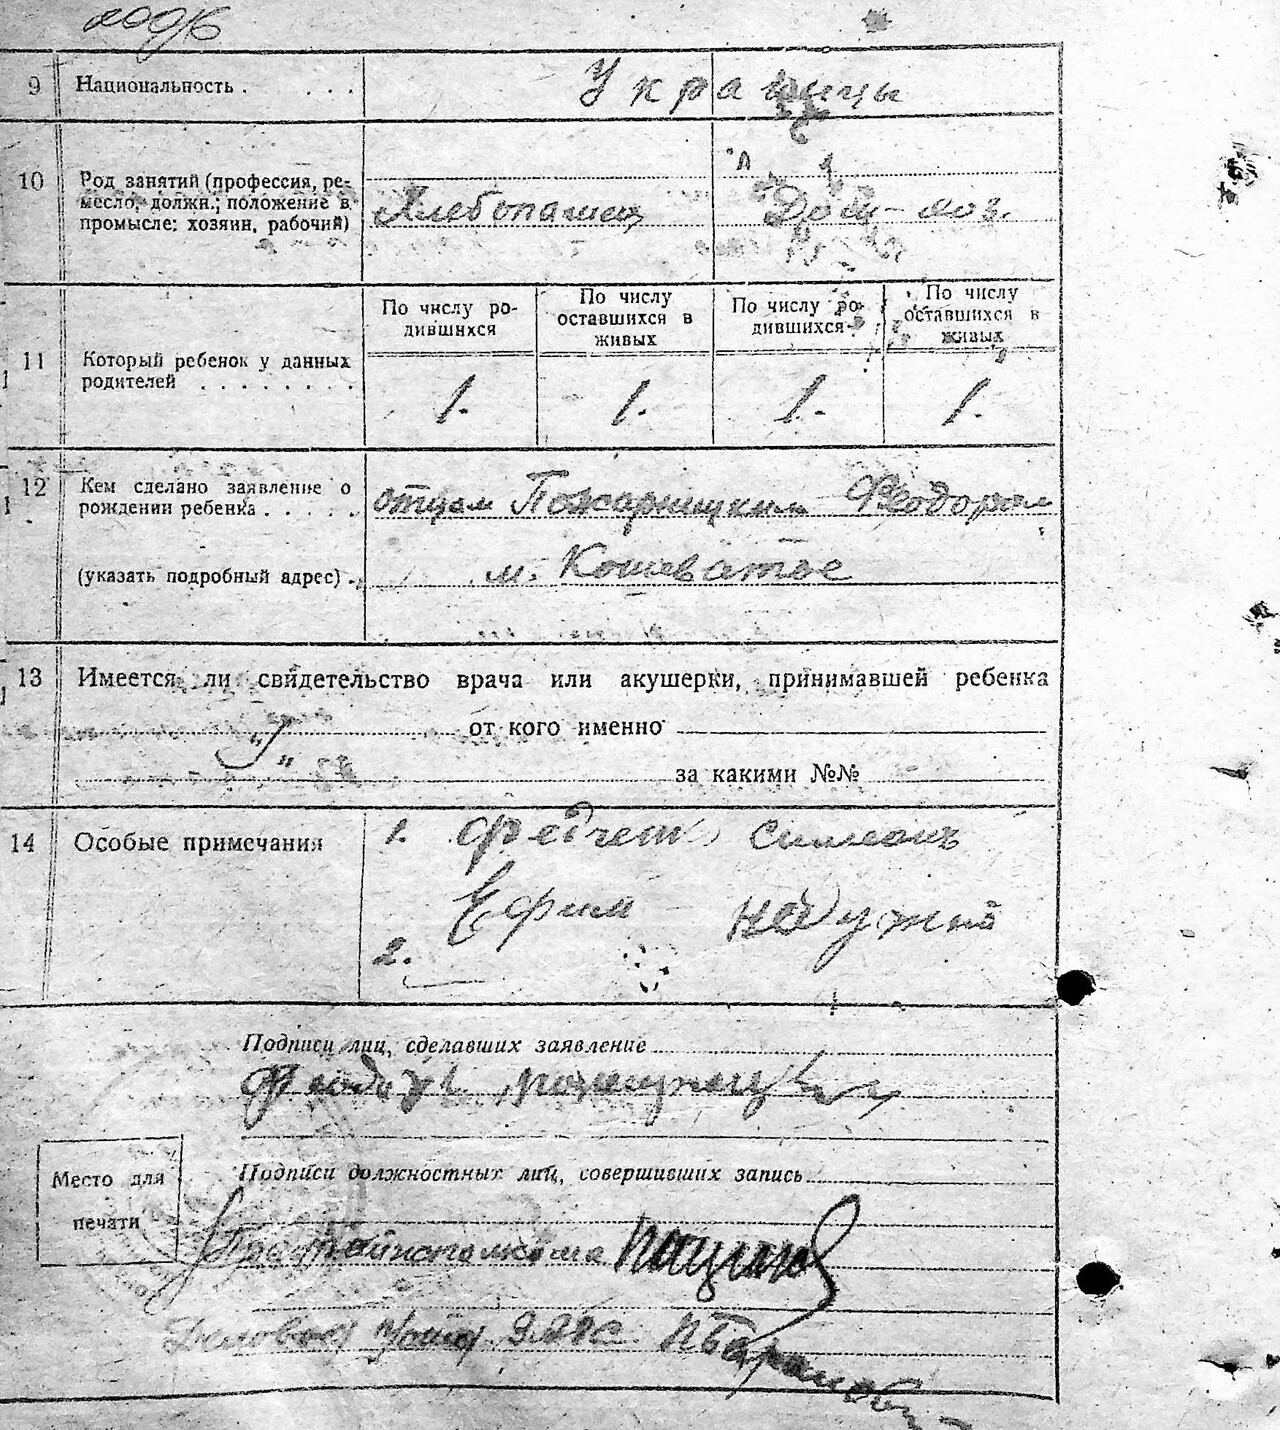 9 Национальность . . . . Украинцы
10 Род занятий (профессия, ре-
месло, должн.; положение в
промысле: хозяин, рабочий)
Хлебопашец Дом-хоз.
По числу ро-
дившихся
По числу
оставшихся в
живых
По числу ро-
дившихся
По числу
оставшихся в
живых
11 Который ребенок у данных
родителей . . . . . . . .
1. 1. 1. 1.
12 Кем сделано заявление о
рождении ребенка . . . . .
отцем Пожарницким Феодором
(указать подробный адрес) . м. Кошеватое
13 Имеется ли свидетельство врача или акушерки, принимавшей ребенка
от кого именно
за какими №№
14 Особые примечания
1. Симеонъ
Ефим
2.
Подписи лиц, сделавших заявление
Феодор
Подписи должностных лиц, совершивших запись
Место для
печати
Пред райисполкома
Деловод Загса